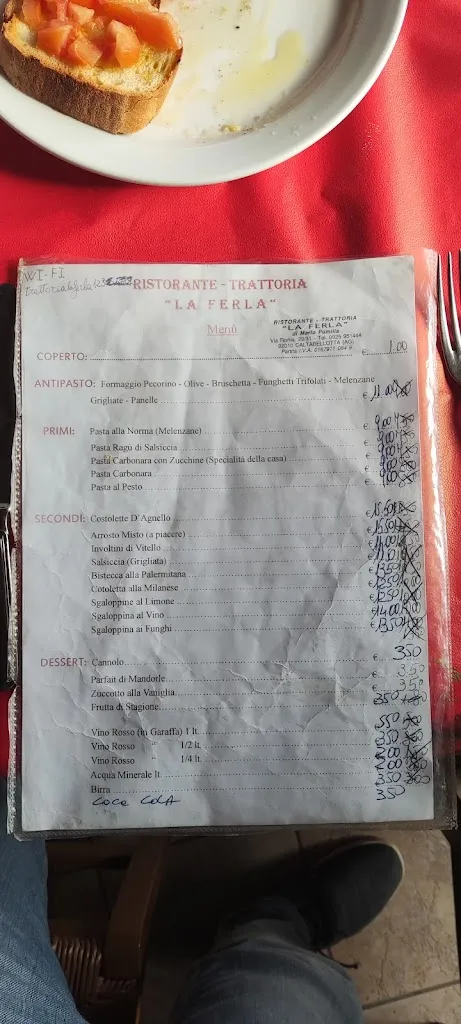 WI-FI
RISTORANTE - TRATTORIA
"LA FERLA"
Menù
RISTORANTE - TRATTORIA
"LA FERLA"
di Maria Pumilia
92010 CALTABELLOTTA (AG)
COPERTO: € 1.00
ANTIPASTO: Formaggio Pecorino - Olive - Bruschetta - Funghetti Trifolati - Melenzane
Grigliate - Panelle € 11.00
PRIMI: Pasta alla Norma (Melenzane) € 9,00
Pasta Ragù di Salsiccia € 9,00
Pasta Carbonara con Zucchine (Specialità della casa) € 9,00
Pasta Carbonara € 9,00
Pasta al Pesto € 9,00
SECONDI: Costolette D'Agnello €
Arrosto Misto (a piacere) €
Involtini di Vitello €
Salsiccia (Grigliata) €
Bistecca alla Palermitana €
Cotoletta alla Milanese €
Sgaloppine al Limone €
Sgaloppina al Vino € 14.00
Sgaloppina ai Funghi € 13.50
DESSERT: Cannolo € 350
Parfait di Mandorle € 350
Zuccotto alla Vaniglia € 350
Frutta di Stagione € 350
Vino Rosso (in Garaffa) 1 lt. 550
Vino Rosso 1/2 lt. 350
Vino Rosso 1/4 lt. 200
Acqua Minerale lt. 200
Birra 350
COCA COLA 350